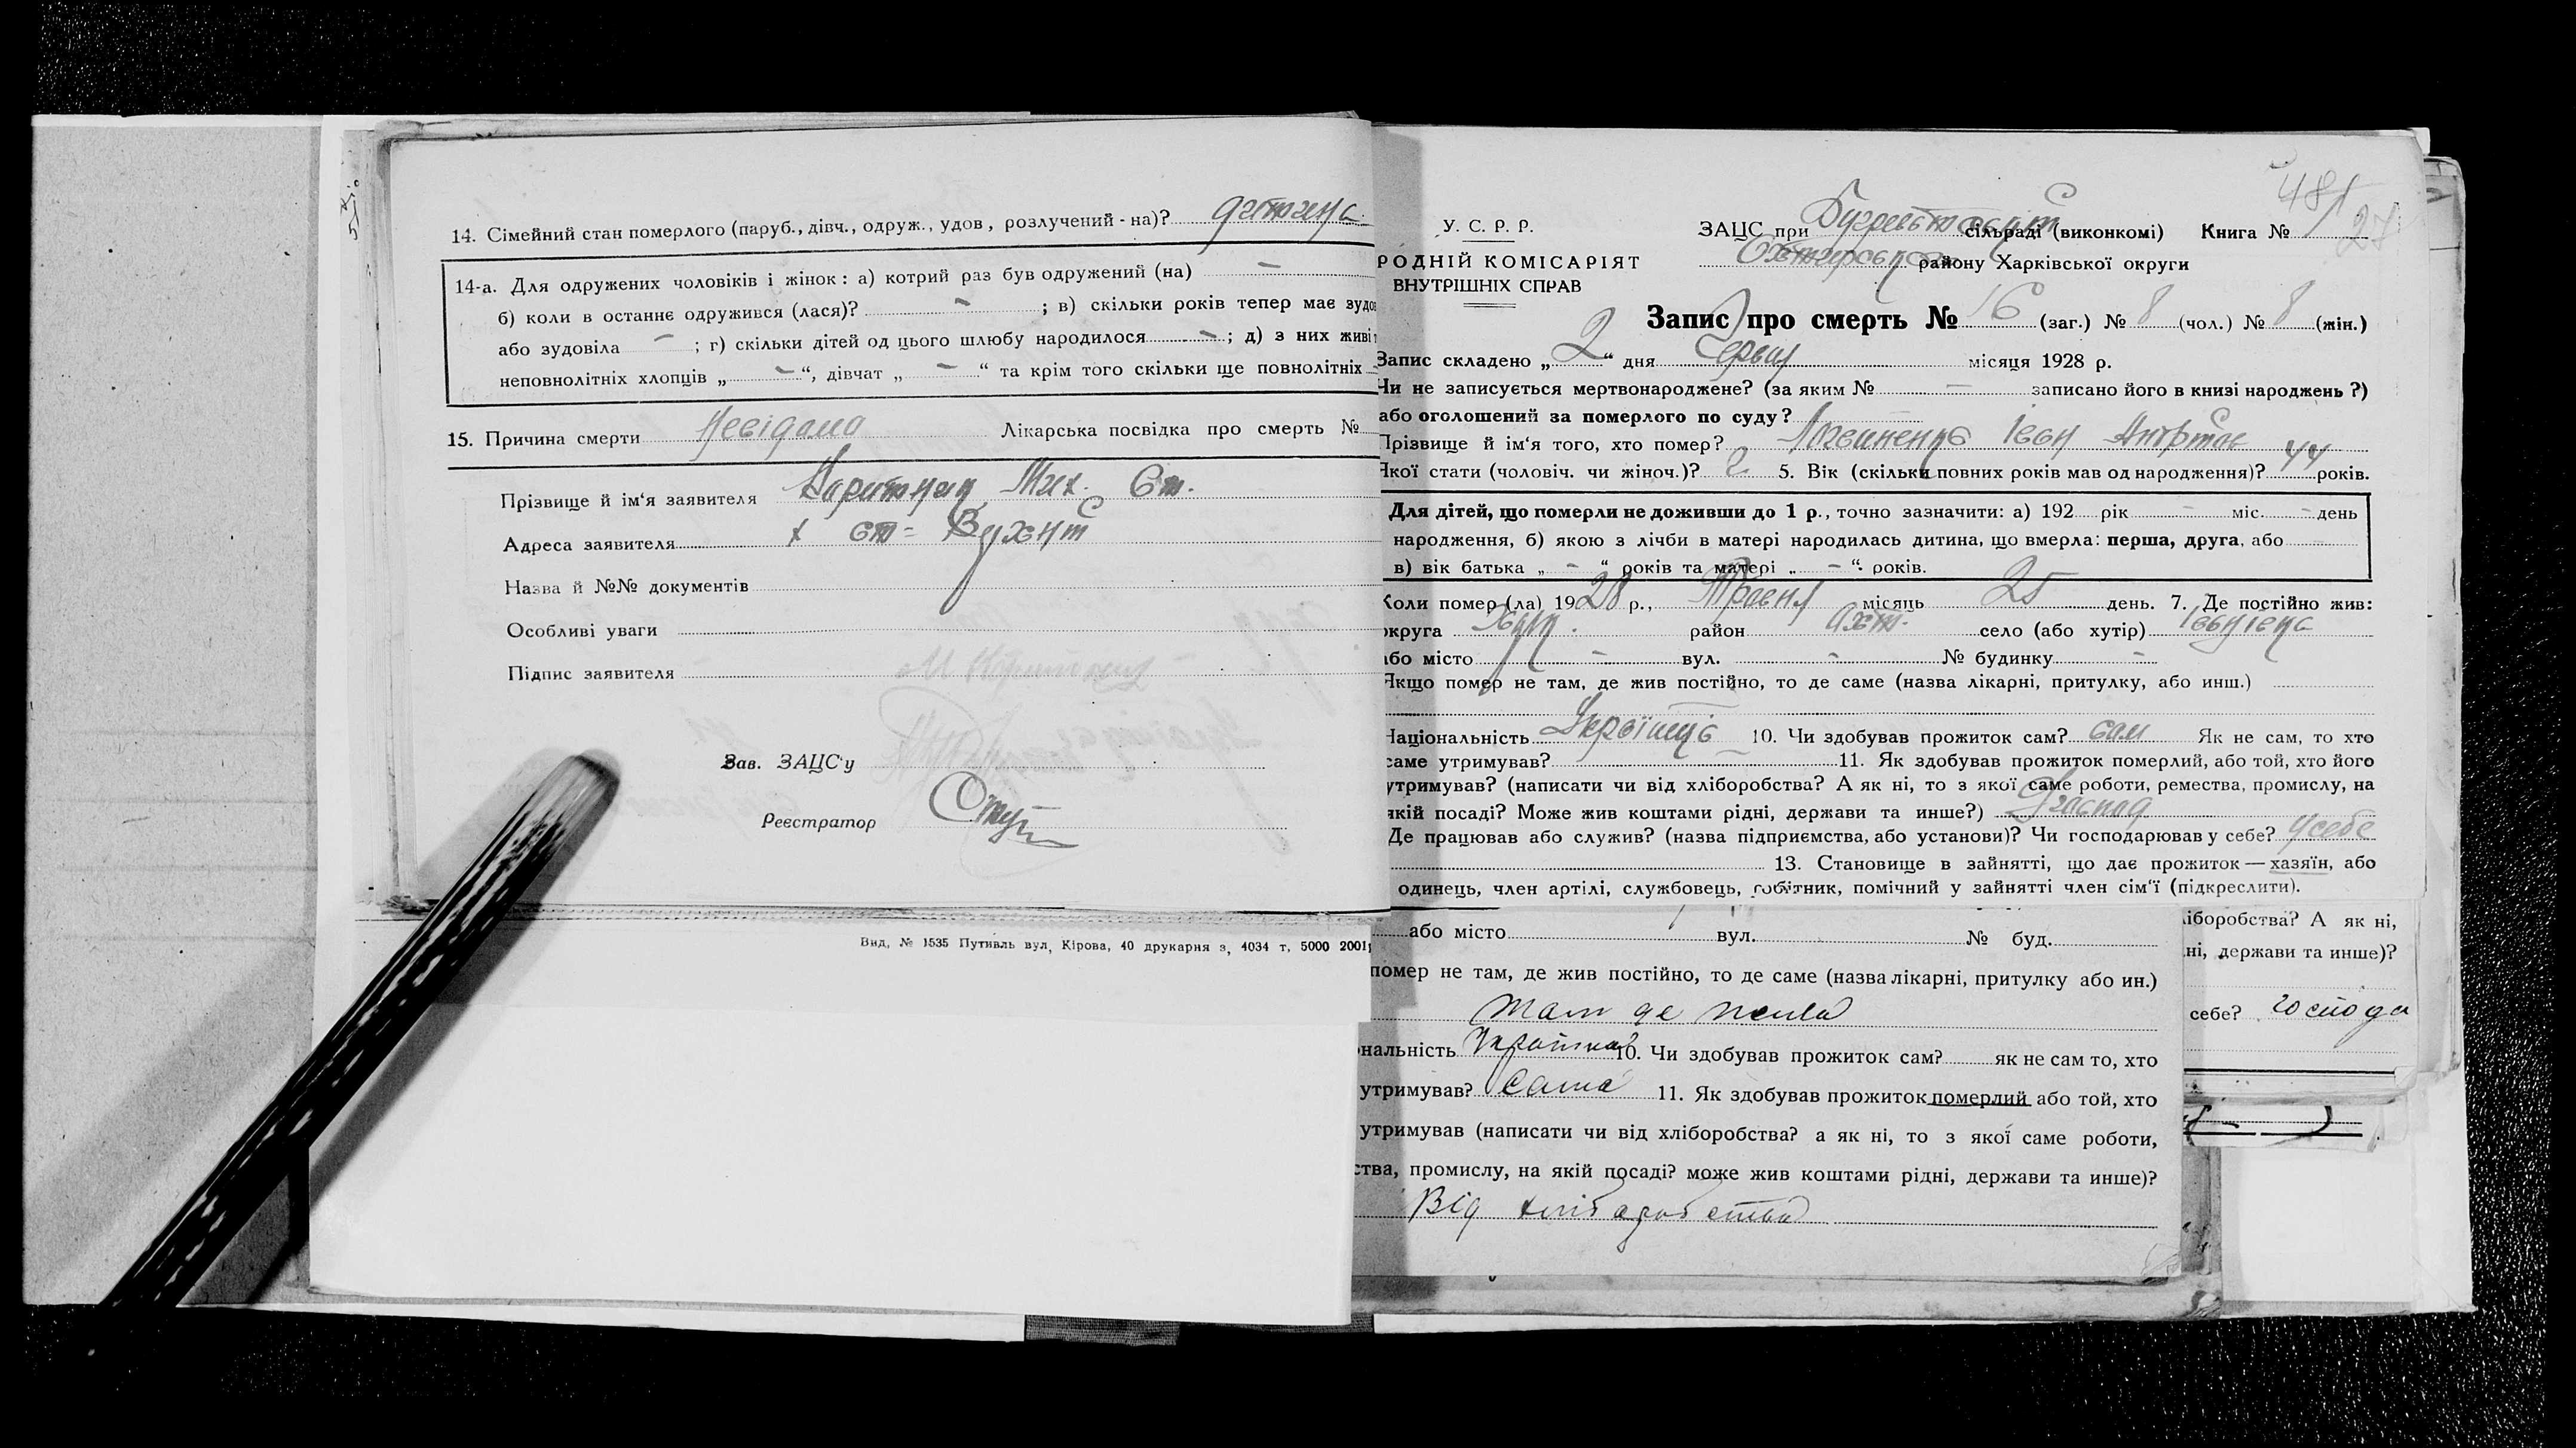 14. Сімейний стан померлого (паруб., дівч., одруж., удов, розлучений - на)? дитина
14-а. Для одружених чоловіків і жінок: а) котрий раз був одружений (на) –
б) коли в останнє одружився (лася)? – ; в) скільки років тепер має зудов
або зудовіла – ; г) скільки дітей од цього шлюбу народилося – ; д) з них живі
неповнолітніх хлопців „ – “, дівчат „ – “ та крім того скільки ще повнолітніх
15. Причина смерти невідома Лікарська посвідка про смерть №
Прізвище й ім'я заявителя Мих. Єт.
Адреса заявителя х
Назва й №№ документів
Особливі уваги
Підпис заявителя
Зав. ЗАЦС'у
Реєстратор
Вид, № 1535 Путивль вул, Кірова, 40 друкарня з, 4034 т, 5000 2001
481
27
У. С. Р. Р.
РОДНІЙ КОМІСАРІЯТ
ВНУТРІШНІХ СПРАВ
ЗАЦС при сільраді (виконкомі) Книга № 1
району Харківської округи
Запис про смерть № 16 (заг.) № 8 (чол.) № 8 (жін.)
Запис складено „ 2 “ дня Червня місяця 1928 р.
Чи не записується мертвонароджене? (за яким № – записано його в книзі народжень?)
або оголошений за померлого по суду?
Прізвище й ім'я того, хто помер? Логвиненко Іван
Якої стати (чоловіч. чи жіноч.)? 5. Вік (скільки повних років мав од народження)? 44 років.
Для дітей, що померли не доживши до 1 р., точно зазначити: а) 192 рік – міс. – день
народження, б) якою з лічби в матері народилась дитина, що вмерла: перша, друга, або
в) вік батька „ – “ років та матері „ – “ років.
Коли помер (ла) 1928 р., Травня місяць 25 день. 7. Де постійно жив:
округа Харк. район Охт. село (або хутір)
або місто – вул. – № будинку –
Якщо помер не там, де жив постійно, то де саме (назва лікарні, притулку, або инш.)
Національність Українець 10. Чи здобував прожиток сам? сам Як не сам, то хто
саме утримував? 11. Як здобував прожиток померлий, або той, хто його
утримував? (написати чи від хліборобства? А як ні, то з якої саме роботи, ремества, промислу, на
якій посаді? Може жив коштами рідні, держави та инше?)
Де працював або служив? (назва підприємства, або установи)? Чи господарював у себе? у себе
13. Становище в зайнятті, що дає прожиток — хазяїн, або
одинець, член артілі, службовець, робітник, помічний у зайнятті член сім'ї (підкреслити).
або місто вул. № буд.
помер не там, де жив постійно, то де саме (назва лікарні, притулку або ин.)
там де жила
нальність Українка 10. Чи здобував прожиток сам? як не сам то, хто
утримував? сама 11. Як здобував прожиток померлий або той, хто
утримував (написати чи від хліборобства? а як ні, то з якої саме роботи,
ства, промислу, на якій посаді? може жив коштами рідні, держави та инше)?
Від хліборобства
ліборобства? А як ні,
ні, держави та инше)?
себе? господа